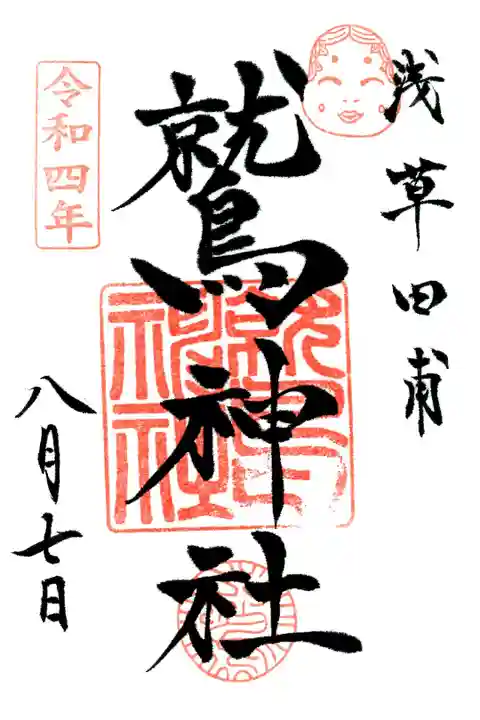 浅草田甫
鷲神社
令和四年
八月七日